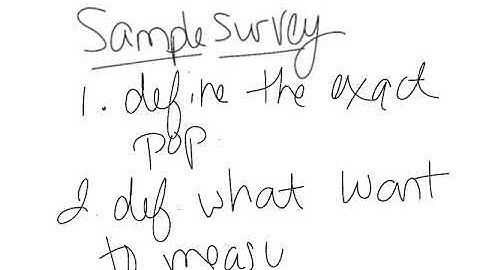 Sample Survey
1. define the exact
pop.
2. def. what want
to measu